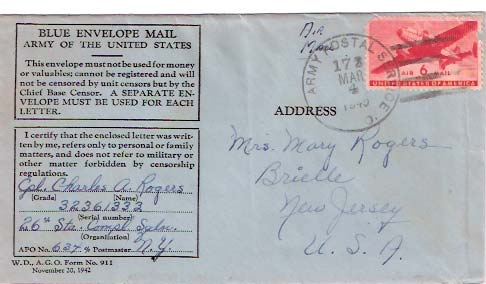 BLUE ENVELOPE MAIL
ARMY OF THE UNITED STATES
This envelope must not be used for money
or valuables; cannot be registered and will
not be censored by unit censors but by the
Chief Base Censor. A SEPARATE EN-
VELOPE MUST BE USED FOR EACH
LETTER.
I certify that the enclosed letter was writ-
ten by me, refers only to personal or family
matters, and does not refer to military or
other matter forbidden by censorship
regulations.
Cpl. Charles A. Rogers
(Grade) (Name)
32361332
(Serial number)
26th Sta. Compl. Sqdn.
(Organization)
APO No. 637 % Postmaster N.Y.
W. D., A. G. O. Form No. 911
November 20, 1942
Air
Mail
ARMY POSTAL SERVICE
173
MAR
4
AIR 6¢ MAIL
UNITED STATES OF AMERICA
ADDRESS
Mrs. Mary Rogers
Brielle
New Jersey
U. S. A.